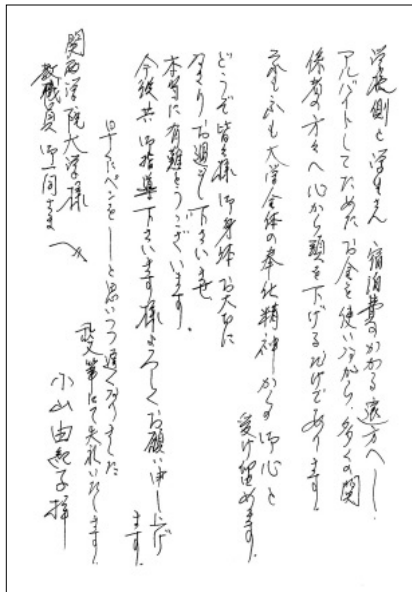 学校側と学生さん、宿泊費のかかる遠方へ
アルバイトしてためたお金を使いながら、多くの関
係者の方々へ心から頭を下げるだけであります。
大学全体の奉仕精神からの御心と
受け留めます。
どうぞ皆々様御身体お大切に
お過し下さいませ
本当に有難とうございいます。
今後共御指導下さいます様よろしくお願い申し上げ
ます。
早くペンをと思いつつ遅くなりました
乱筆にて失礼いたします。
関西学院大学様
教職員御一同さまへ
小山由紀子拝